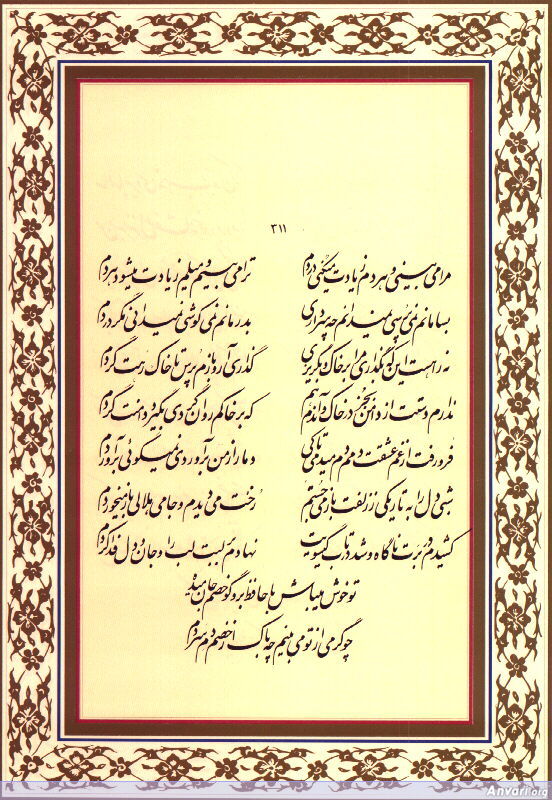 ۳۱۱
مرا می بینی و هر دم زیادت میکنی دردم ترا می بینم و میلم زیادت میشود هر دم
بسامانم نمی پرسی نمیدانم چه سر داری بدرمانم نمی کوشی نمیدانی مگر دردم
نه راهست این که بگذاری مرا بر خاک و بگریزی گذاری آر و بازم پرس تا خاک رهت گردم
ندارم دستت از دامن بجز در خاک و آندم هم که بر خاکم روان گردی بگیرد دامنت گردم
فرو رفت از غم عشقت دمم دم میدهی تا کی دمار از من برآوردی نمیگوئی برآوردم
شبی دل را به تاریکی ز زلفت باز می جستم رخت می دیدم و جامی هلالی باز میخوردم
کشیدم در برت ناگاه و شد در تاب گیسویت نهادم بر لبت لب را و جان و دل فدا کردم
تو خوش میباش با حافظ برو گو خصم جان میده
چو گرمی از تو می بینم چه باک از خصم دم سردم
Anvari.org